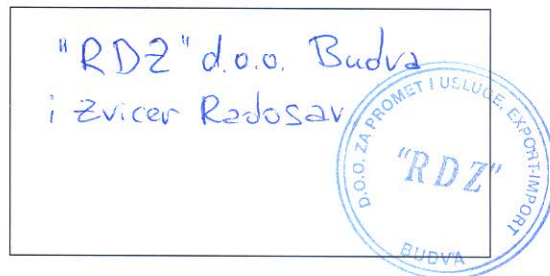 "RDZ" d.o.o. Budva
i Zvicer Radosav
D.O.O. ZA PROMET I USLUGE, EXPORT-IMPORT
"RDZ"
BUDVA